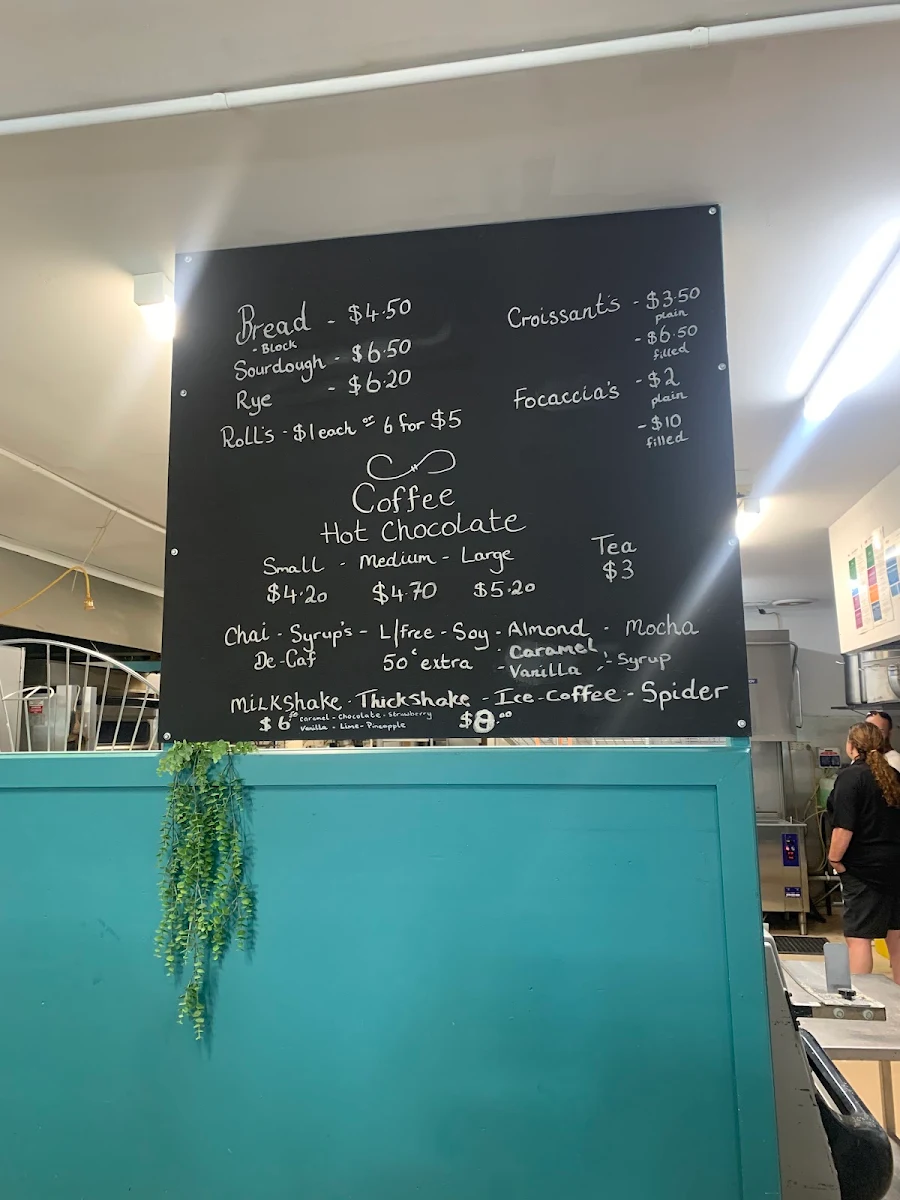 Bread - $4.50
- Block
Sourdough - $6.50
Rye - $6.20
Roll's - $1 each or 6 for $5
Croissant's - $3.50
plain
- $6.50
filled
Focaccia's - $2
plain
- $10
filled
Coffee
Hot Chocolate
Small - Medium - Large
$4.20 $4.70 $5.20
Tea
$3
Chai - Syrup's - L/free - Soy - Almond - Mocha
De-Caf 50c extra - Caramel
- Vanilla - Syrup
Milkshake - Thickshake - Ice-Coffee - Spider
$6.50 Caramel - Chocolate - Strawberry $8.00
Vanilla - Lime - Pineapple